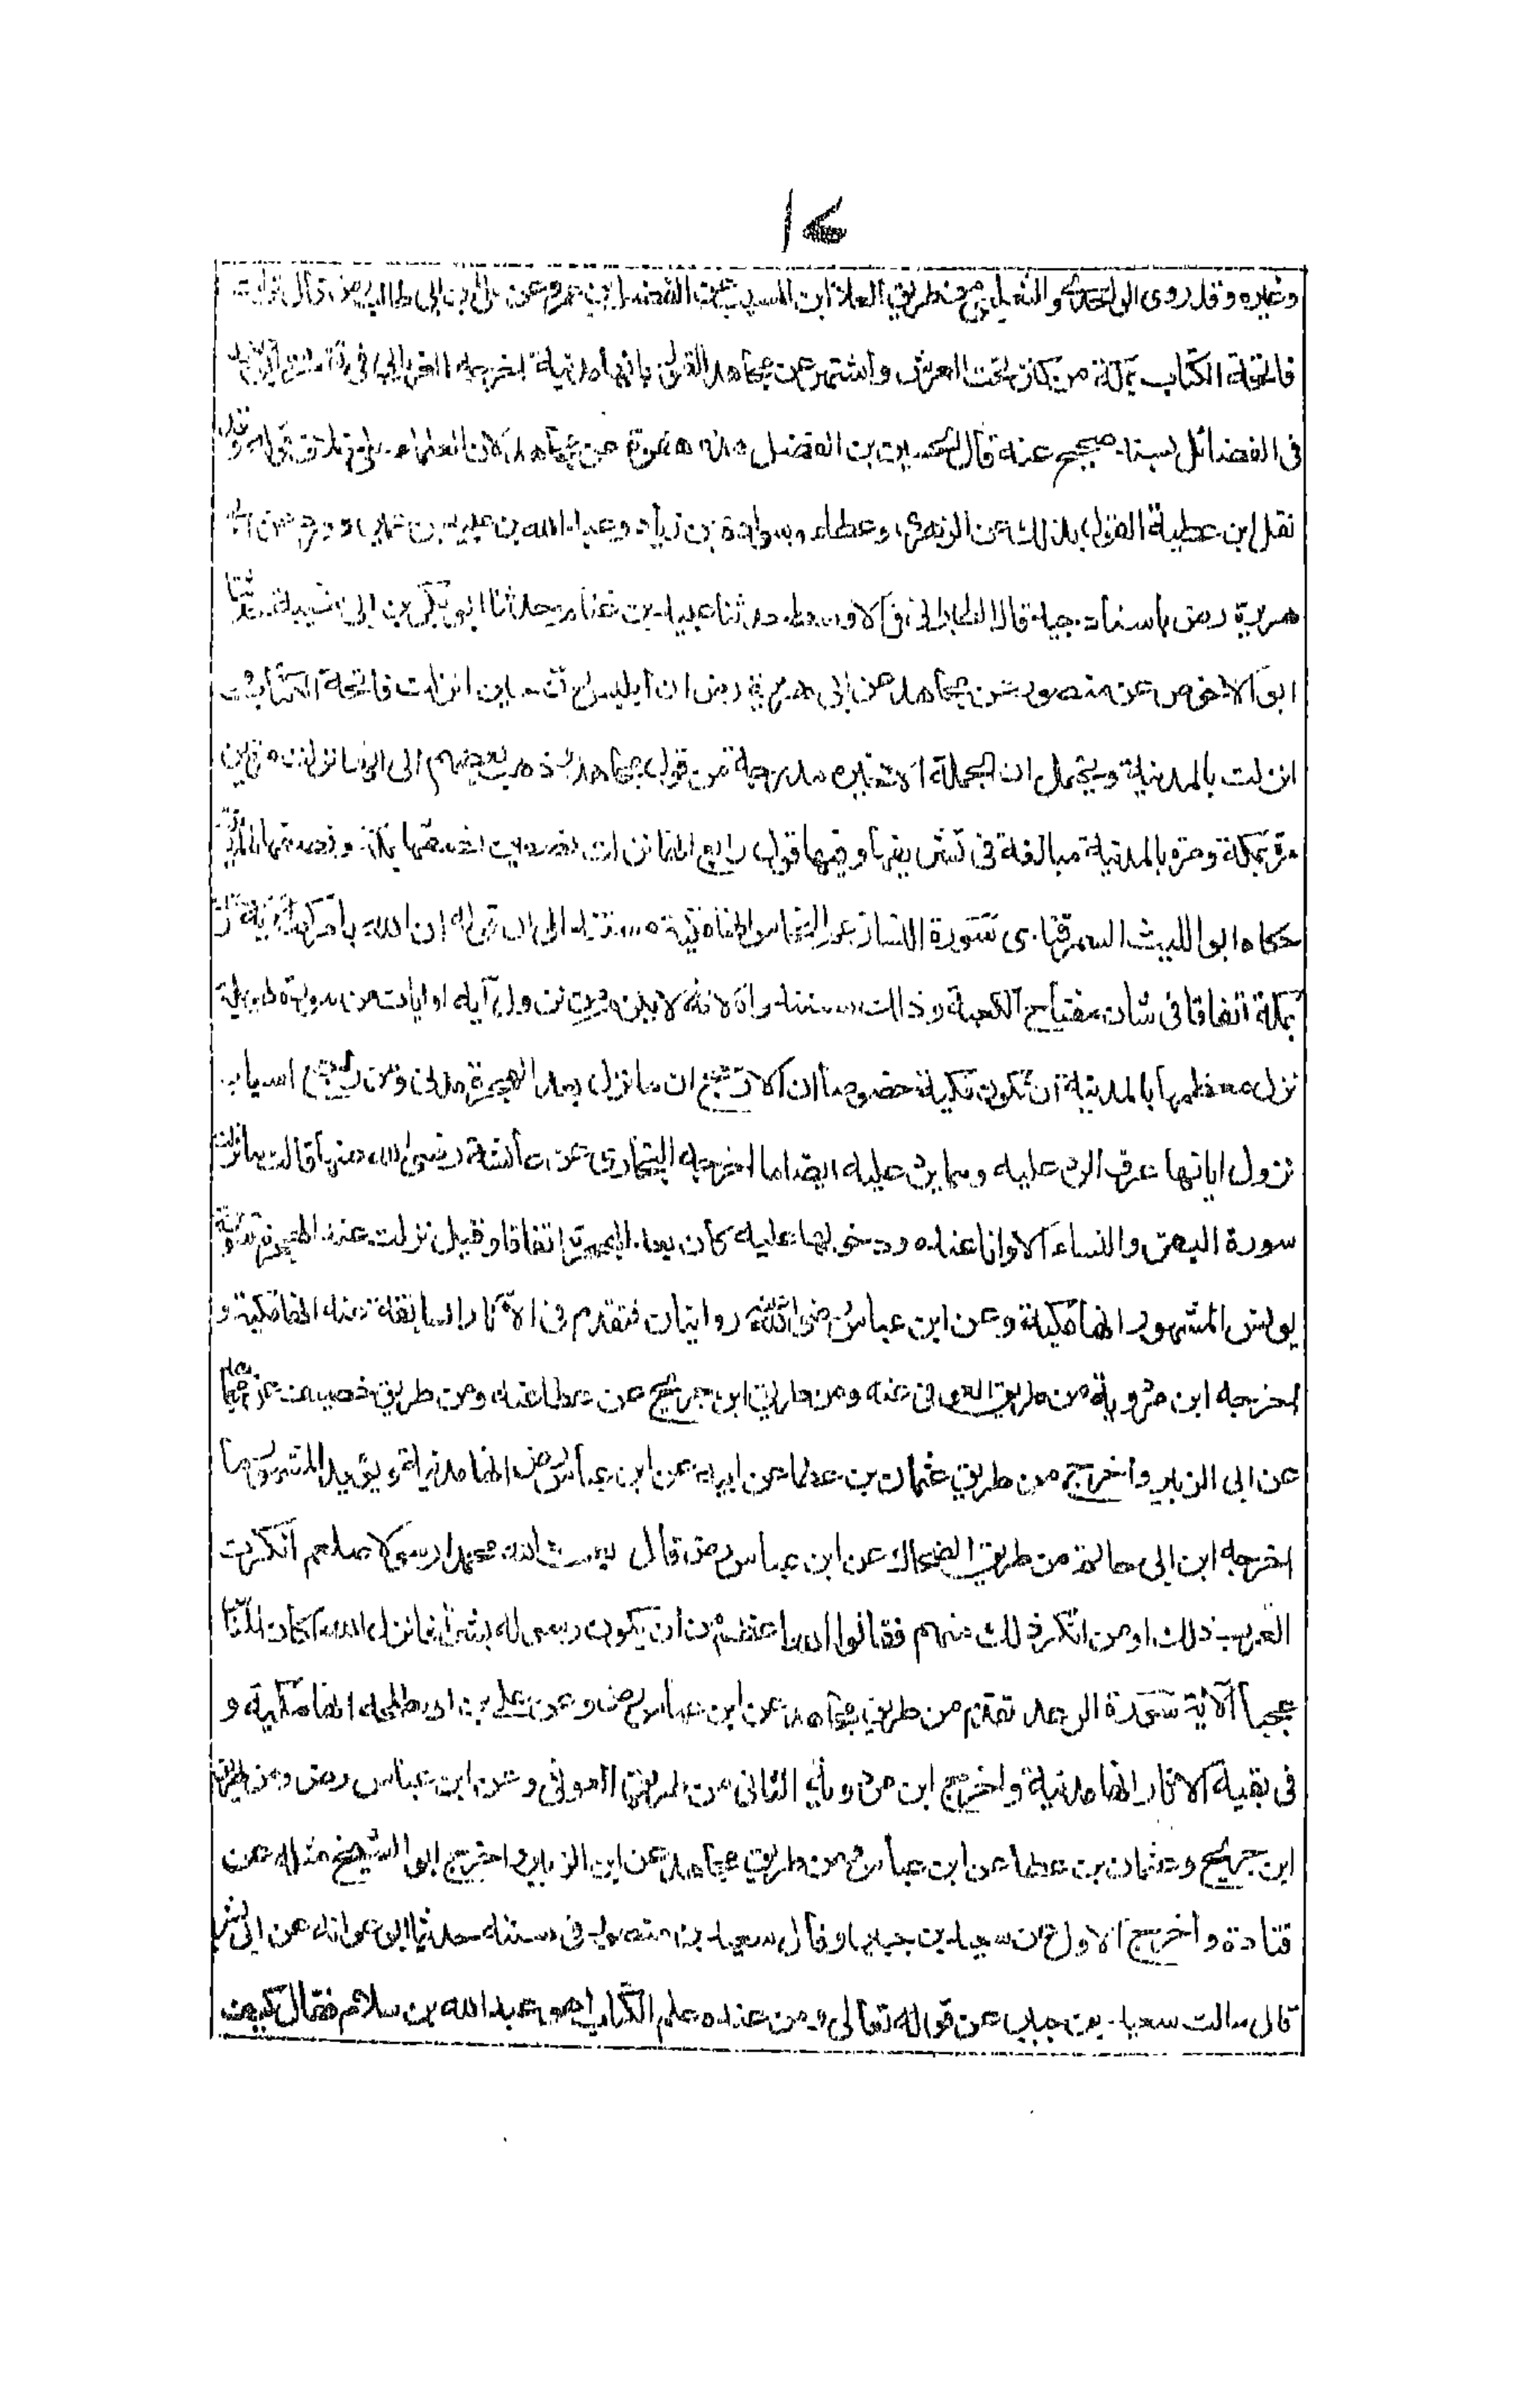 وغيره وقد روى الواحدي والثعلبي من طريق العلاء ابن المسيب عن الفضل ابن عمرو عن علي بن ابى طالب رض قال نزلت
فاتحة الكتاب بمكة من كنز تحت العرش واشتهر عن مجاهد القول بانها مدنية اخرجه الفريابى فى تفسيره
فى الفضائل بسند صحيح عنه قال الحسين بن الفضل هذه هفوة من مجاهد لان العلماء على خلاف قوله وقد
نقل ابن عطية القول بذلك عن الزهرى وعطاء وسوادة بن زياد وعبد الله بن عبيد بن عمير وورد عن ابى
هريرة رض باسناد جيد قال الطبرانى فى الاوسط حدثنا عبيد بن غنام حدثنا ابو بكر بن ابى شيبة حدثنا
ابو الاحوص عن منصور عن مجاهد عن ابى هريرة رض ان ابليس رن حين انزلت فاتحة الكتاب و
انزلت بالمدينة ويحتمل ان الجملة الاخيرة مدرجة من قول مجاهد وذهب بعضهم الى انها نزلت مرتين
مرة بمكة ومرة بالمدينة مبالغة فى تشريفها وفيها قول رابع انها نزلت نصفين نصفها بمكة ونصفها بالمدينة
حكاه ابو الليث السمرقندى سورة النساء زعم النحاس انها مكية مستندا الى ان قوله ان الله يامركم الآية نزلت
بمكة اتفاقا فى شان مفتاح الكعبة وذلك مستند واه لانه لا يلزم من نزول آية او ايات من سورة طويلة
نزل معظمها بالمدينة ان تكون مكية خصوصا ان الارجح ان ما نزل بعد الهجرة مدنى ومن راجع اسباب
نزول اياتها عرف الرد عليه ومما يرد عليه ايضا ما اخرجه البخارى عن عائشة رضى الله عنها قالت ما نزلت
سورة البقرة والنساء الا وانا عنده ودخولها عليه كان بعد الهجرة اتفاقا وقيل نزلت عند الهجرة سورة
يونس المشهور انها مكية وعن ابن عباس رضى الله عنه روايتان فتقدم فى الآثار السابقة عنه انها مكية و
اخرجه ابن مردويه من طريق العوفى عنه ومن طريق ابن جريج عن عطا عنه ومن طريق خصيف عن مجاهد
عن ابى الزبير واخرج من طريق عثمان بن عطا عن ابيه عن ابن عباس رض انها مدنية ويؤيد المشهور ما
اخرجه ابن ابى حاتم من طريق الضحاك عن ابن عباس رض قال لما بعث الله محمدا رسولا صلعم انكرت
العرب ذلك او من انكر ذلك منهم فقالوا الله اعظم من ان يكون رسوله بشرا فانزل الله اكان للناس
عجبا الآية سورة الرعد تقدم من طريق مجاهد عن ابن عباس رض وعن على بن ابى طلحة انها مكية و
فى بقية الاثار انها مدنية واخرج ابن مردويه الثانى من طريق العوفى وعن ابن عباس رض ومن طريق
ابن جريج وعثمان بن عطا عن ابن عباس رض ومن طريق مجاهد عن ابن الزبير واخرج ابو الشيخ مثله عن
قتادة واخرج الاول عن سعيد بن جبير وقال سعيد بن منصور فى سننه حدثنا ابو عوانه عن ابى بشر
قال سالت سعيد بن جبير عن قوله تعالى ومن عنده علم الكتاب اهو عبد الله بن سلام فقال كيف